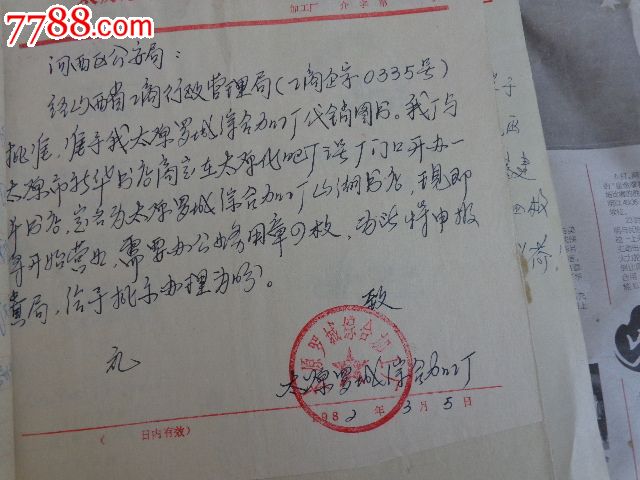 7788.com
加工厂 介字第
河西区公安局：
经山西省工商行政管理局(工商企字0335号)
批准，准予我太原罗城综合加工厂代销图书。我厂与
太原市新华书店商定在太原化肥厂 厂门口开办一
书店，定名为太原罗城综合加工厂山湖书店，现即
将开始营业，需要办公业务用章四枚，为此特申报
贵局，给予批示办理为盼。
致
礼
太原罗城综合加工厂
1982年3月5日
( 日内有效)